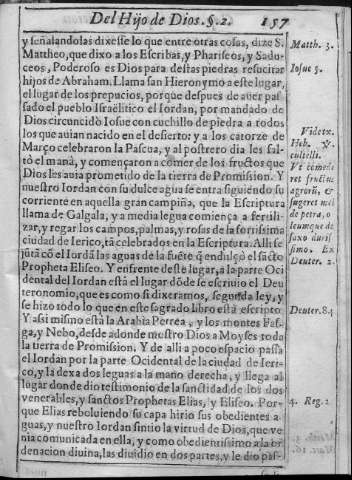 Del Hijo de Dios. §. 2. 157
y señalandolas dixeste lo que entre otras cosas, dize S.
Mattheo, que dixo a los Escribas, y Phariseos, y Sadu-
ceos, Poderoso es Dios para destas piedras resucitar
hijos de Abraham. Llama san Hieronymo a este lugar,
el lugar de los prepucios, porque despues de auer pas
sado el pueblo Israëlitico el Iordan, por mandado de
Dios circuncidò Iosue con cuchillo de piedra a todos
los que auian nacido en el desierto: y a los catorze de
Março celebraron la Pascua, y al postrero dia les fal-
tò el manà, y començaron a comer de los fructos que
Dios les auia prometido de la tierra de Promission. Y
nuestro Iordan con su dulce agua se entra siguiendo su
corriente en aquella gran campiña, que la Escriptura
llama de Galgala, y a media legua comiença a fertili-
zar, y regar los campos, palmas, y rosas de la fortissima
ciudad de Ierico, tā celebrados en la Escriptura. Alli se
jūtā cō el Iordā las aguas de la fuēte q̄ endulçò el sācto
Propheta Eliseo. Y enfrente deste lugar, a la parte Oci
dental del Iordan està el lugar dōde se escriuio el Deu
teronomio, que es como si dixeramos, segunda ley, y
se hizo todo lo que en este sagrado libro està escripto
Y assi mismo està la Arabia Petrea, y los montes Fas-
ga, y Nebo, desde adonde mostro Dios a Moyses toda
la tierra de Promission. Y de alli a poco espacio passa
el Iordan por la parte Ocidental de la ciudad de Ieri-
co, y la dexa dos leguas a la mano derecha, y llega al
lugar donde dio testimonio de la sanctidad de los dos
venerables, y sanctos Prophetas Elias, y Eliseo. Por-
que Elias reboluiendo su capa hirio sus obedientes a-
guas, y nuestro Iordan sintio la virtud de Dios, que ve
nia comunicada en ella, y como obedientissimo a la or
denacion diuina, las diuidio en dos partes, y le dio pas-
Matth. 3.
Iosue 5.
Videtx.
Heb. v.
cultelli.
Vt comede
ret fructus
agrorū, &
sugeret mel
de petra, o
leumque de
saxo duris
simo. Ex
Deuter. 2.
Deuter. 84
4. Reg. 2